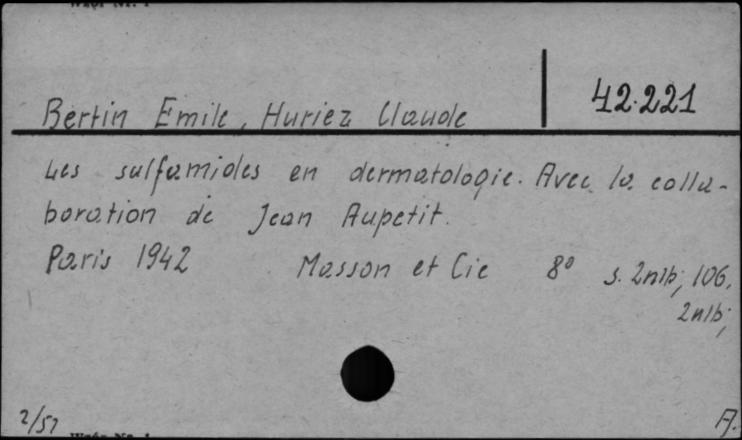 Wzór Nr. 1
42.221
Bertin Emile, Huriez Claude
Les sulfamides en dermatologie. Avec la colla-
boration de Jean Aupetit.
Paris 1942 Masson et Cie 8° s. 2nlb; 106,
2nlb;
2/51 A.
Wzór Nr. 1